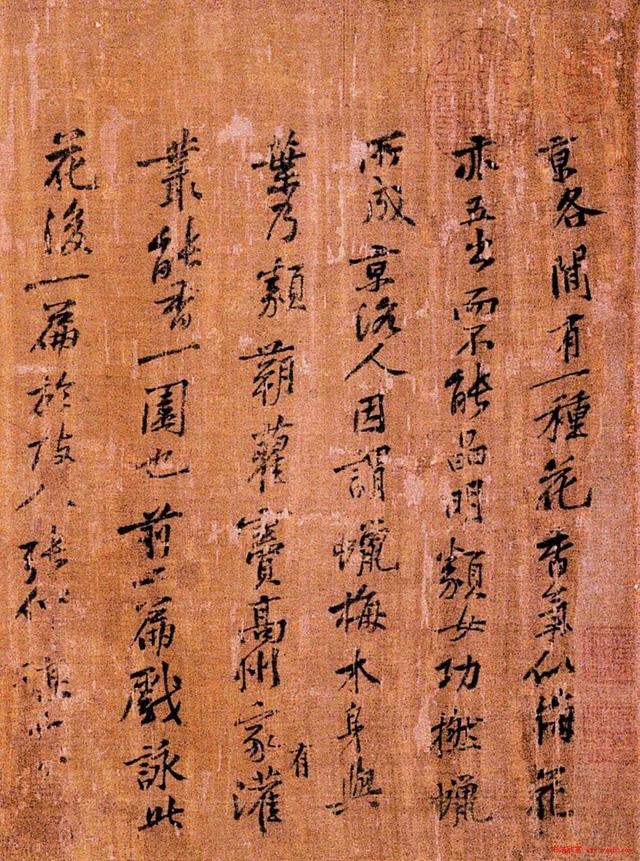 京各間有一種花香氣似梅花
亦五出而不能晶明類女功撚蠟
所成京洛人因謂蠟梅木身與
葉乃類蒴藋竇高州家有灌
叢能香一園也前二篇戲詠此
花後一篇於故人張仲